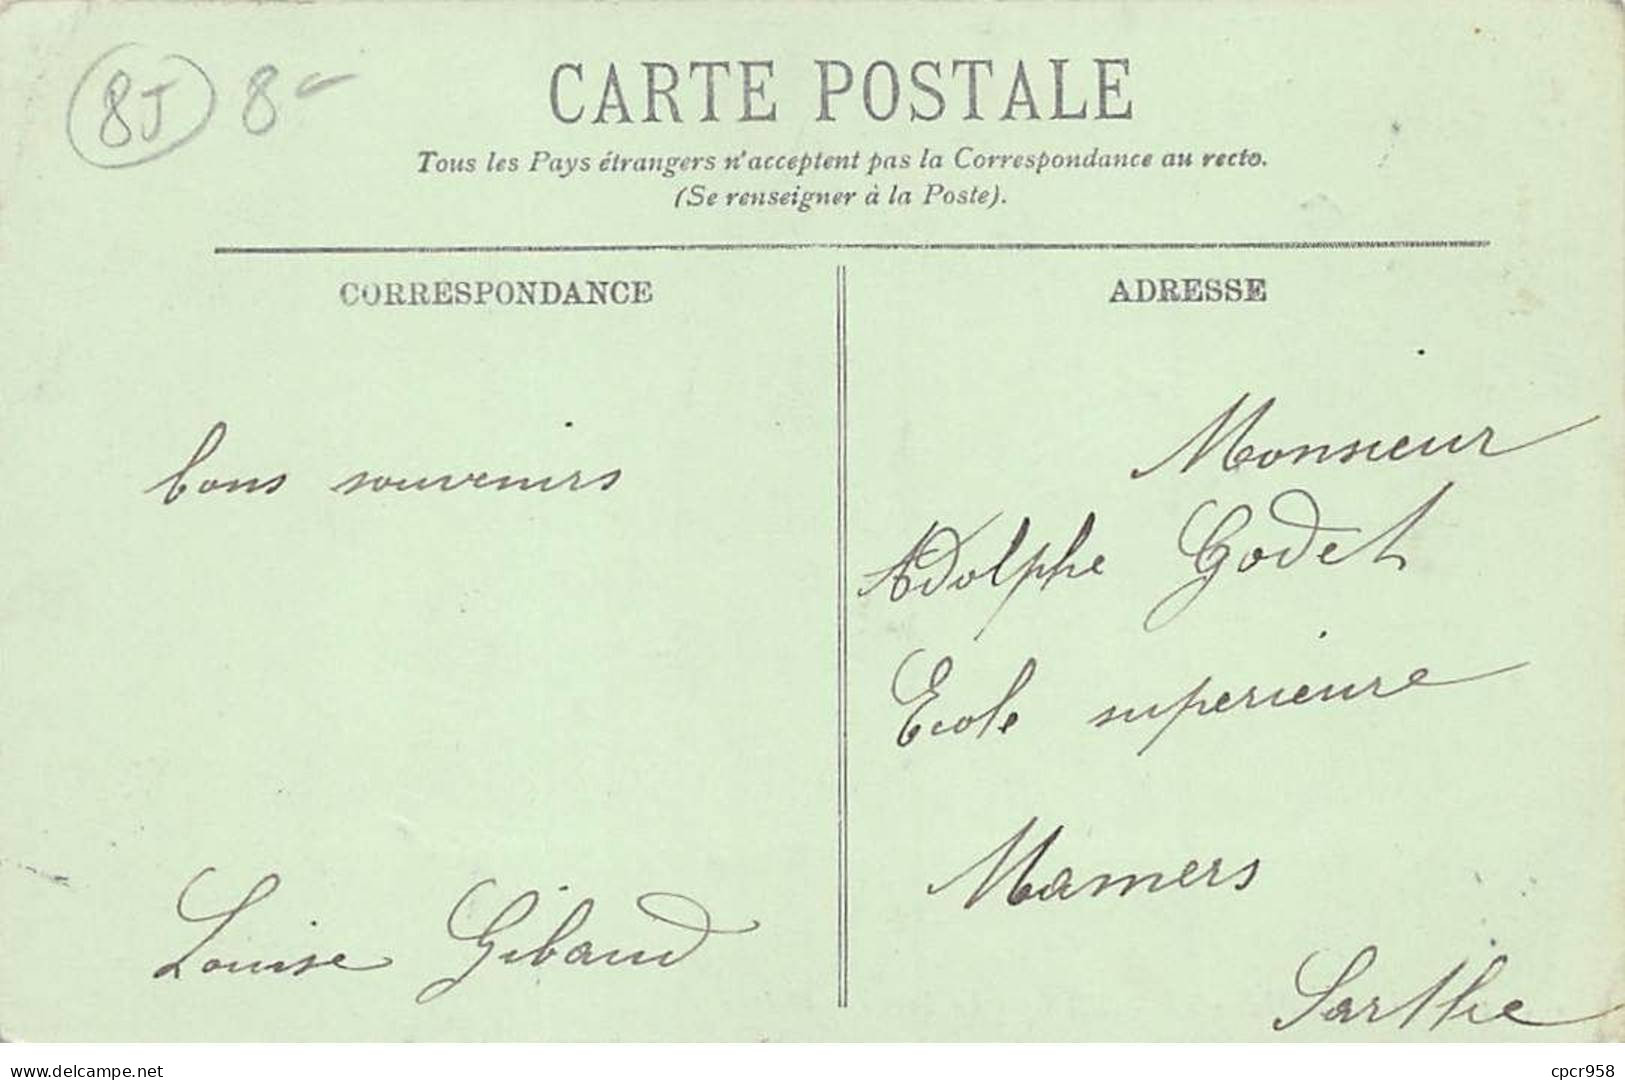 8J 8-
CARTE POSTALE
Tous les Pays étrangers n'acceptent pas la Correspondance au recto.
(Se renseigner à la Poste).
CORRESPONDANCE
bons souvenirs
Louise Gibaud
ADRESSE
Monsieur
Adolphe Godet
Ecole superieure
Mamers
Sarthe
www.delcampe.net
cpcr958